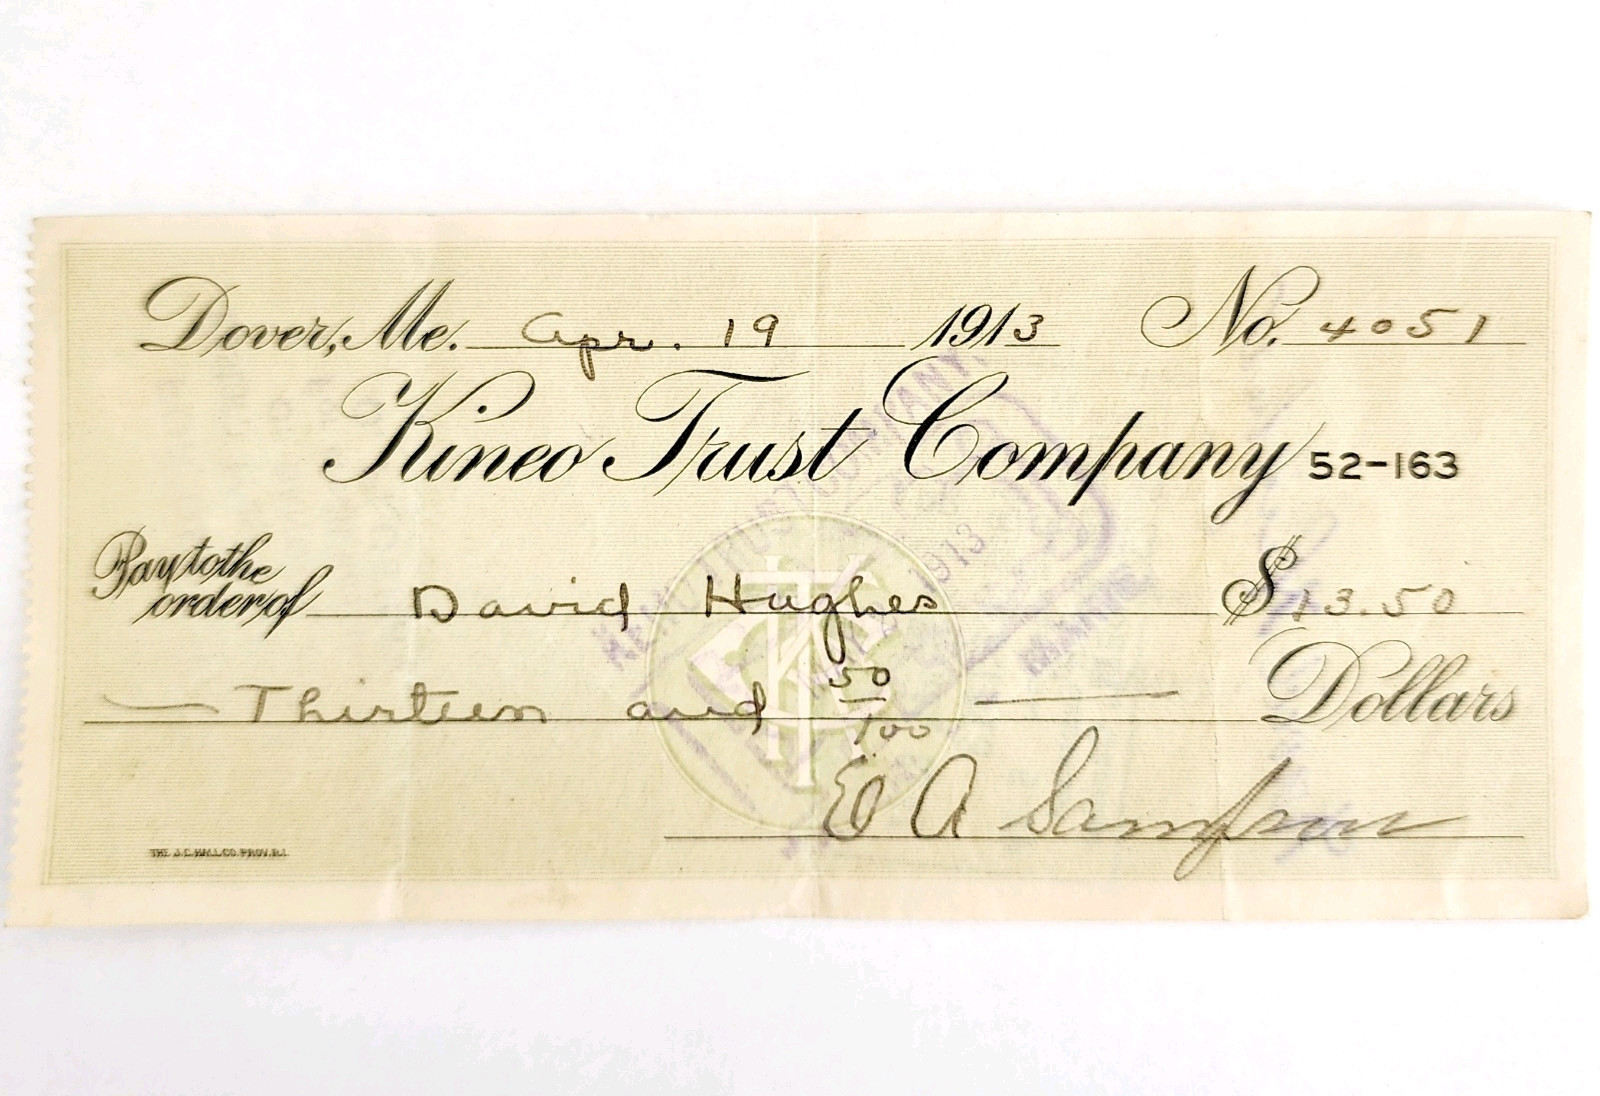 Dover, Me. Apr. 19 1913 No. 4051
Kineo Trust Company 52-163
Pay to the
order of David Hughes $13.50
Thirteen and 50/100 Dollars
E A Sampson
THE J.C. HALL CO. PROV. R.I.
TRUST COMPANY
1913